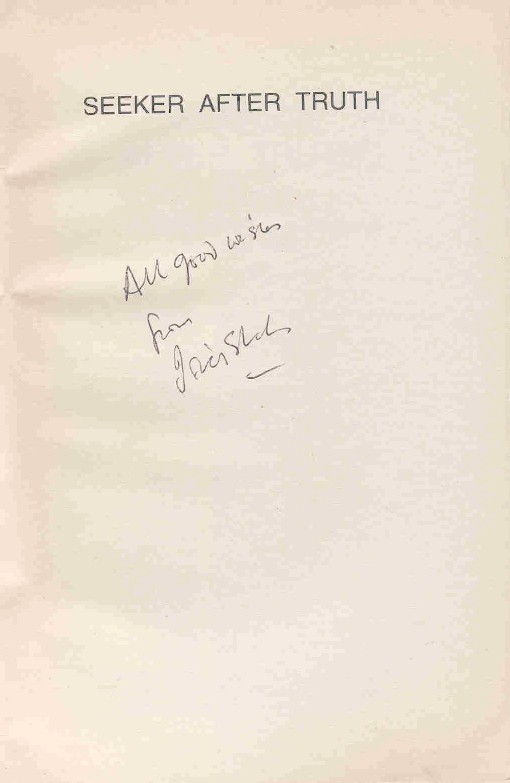 SEEKER AFTER TRUTH
All good wishes
from
Idries Shah